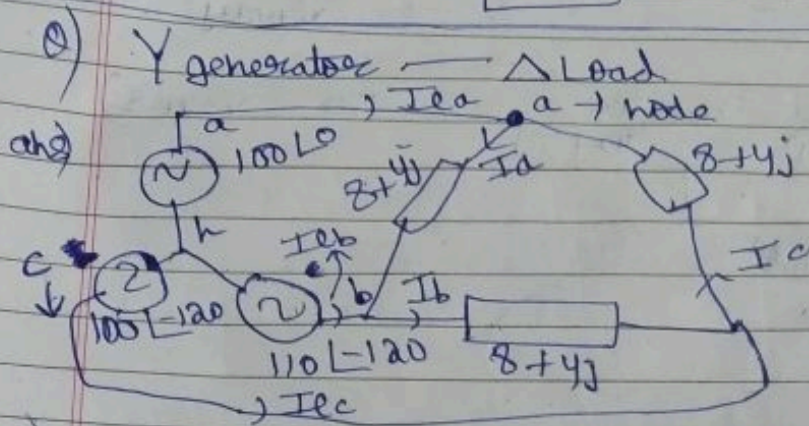 Q) Y generator — Δ Load
ans)
a
Iea
a → node
100∟0
8+4j
Ia
8+4j
n
c
Ieb
b
Ib
Ic
100∟-120
110∟-120
8+4j
Iec